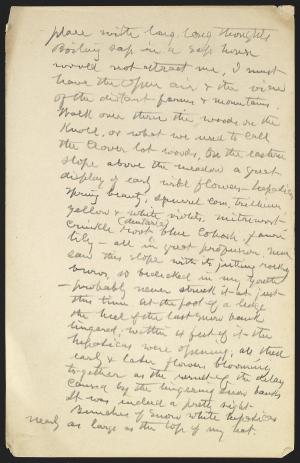 place with long, long thoughts
Boiling sap in a sap house
would not attract me, I must
have the open air & the view
of the distant farms & mountains.
Walk over thru the woods on the
Knoll, or what we used to call
the Clover lot woods, On the eastern
slope above the meadow a great
display of early wild flowers — hepaticas
spring beauty, squirrel corn, trillium
yellow & white violets, miterwort
(dentaria)
Crinkle root blue cohosh, fawn
lily — all in great profusion, never
saw this slope with its jutting rocky
brows, so bedecked in my youth
— probably never struck it at just
this time. At the foot of a ledge
the heel of the last snow bank
lingered. within 15 feet of it the
hepaticas were opening; all these
early & later flowers blooming
together as the result of the delay
caused by the lingering snow banks
It was indeed a pretty sight.
Bunches of snow white hepaticas
nearly as large as the top of my hat.